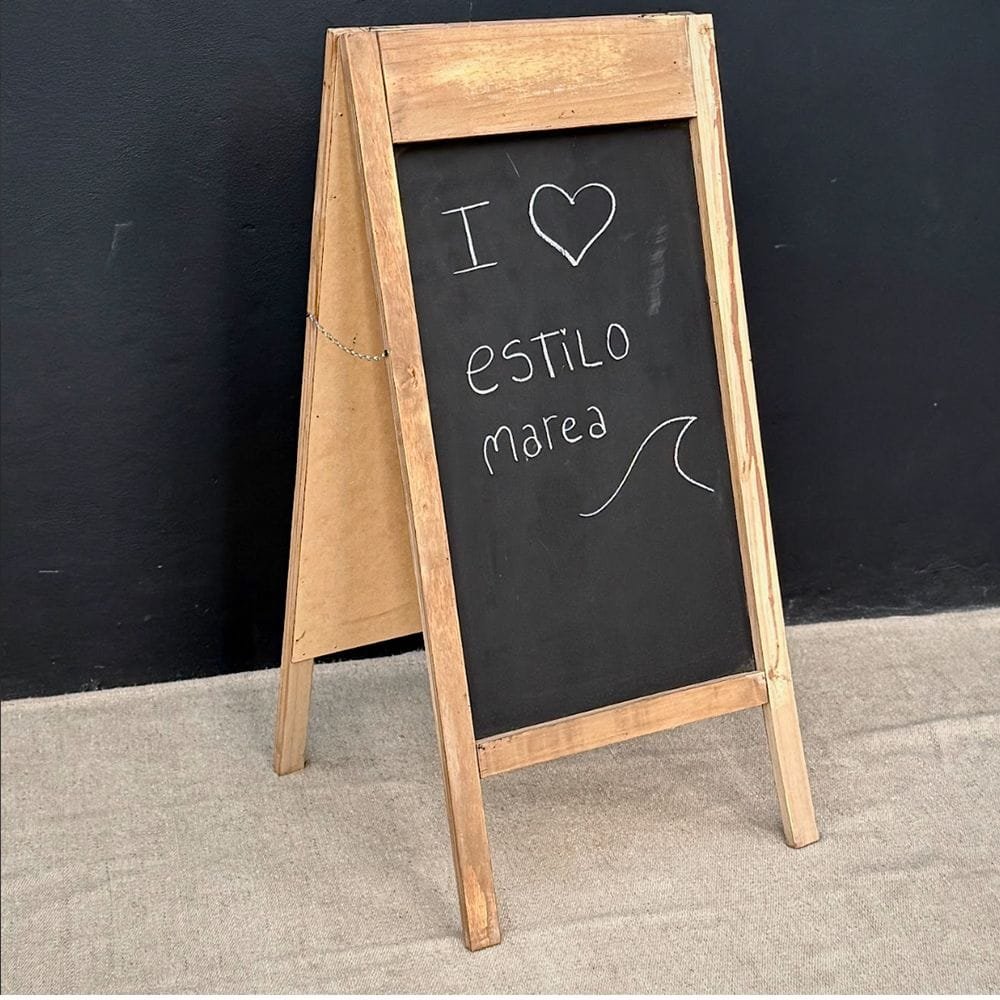 I ♡
eSTiLO
marea